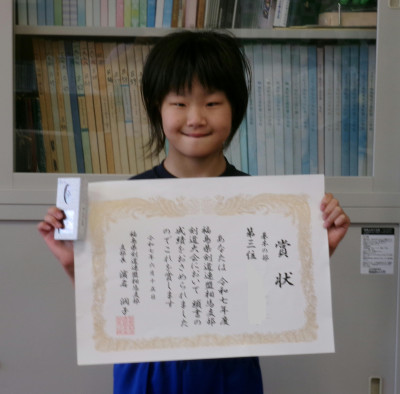 賞状
基本の部
第三位
あなたは令和七年度
福島県剣道連盟相馬支部
剣道大会において頭書の
成績をおさめられました
のでこれを賞します
令和七年六月十五日
福島県剣道連盟相馬支部
支部長